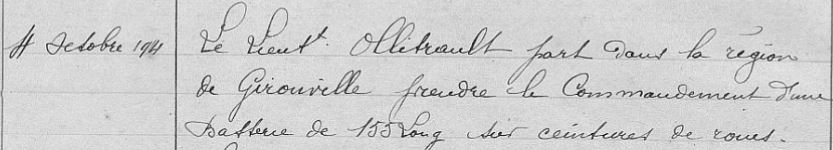 4 Octobre 1914 Le Lieut^t. Ollitrault part dans la région
de Gironville prendre le Commandement d'une
Batterie de 155 Long sur ceintures de roues.